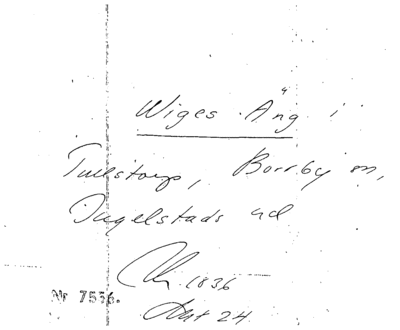 Wiges Äng i
Tullstorp, Borrby sn,
Ingelstads hd
1836
Nr 7556.
Akt 24